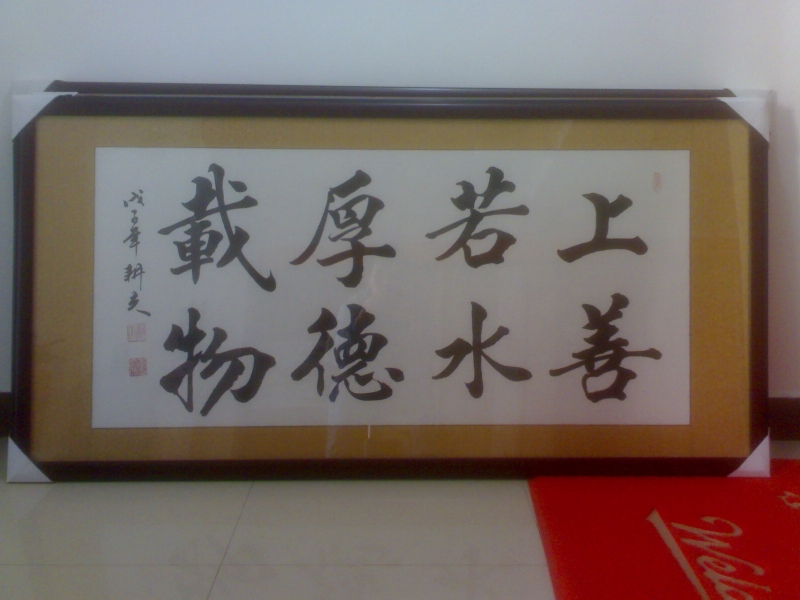 上善
若水
厚德
載物
戊子年耕夫
Welco